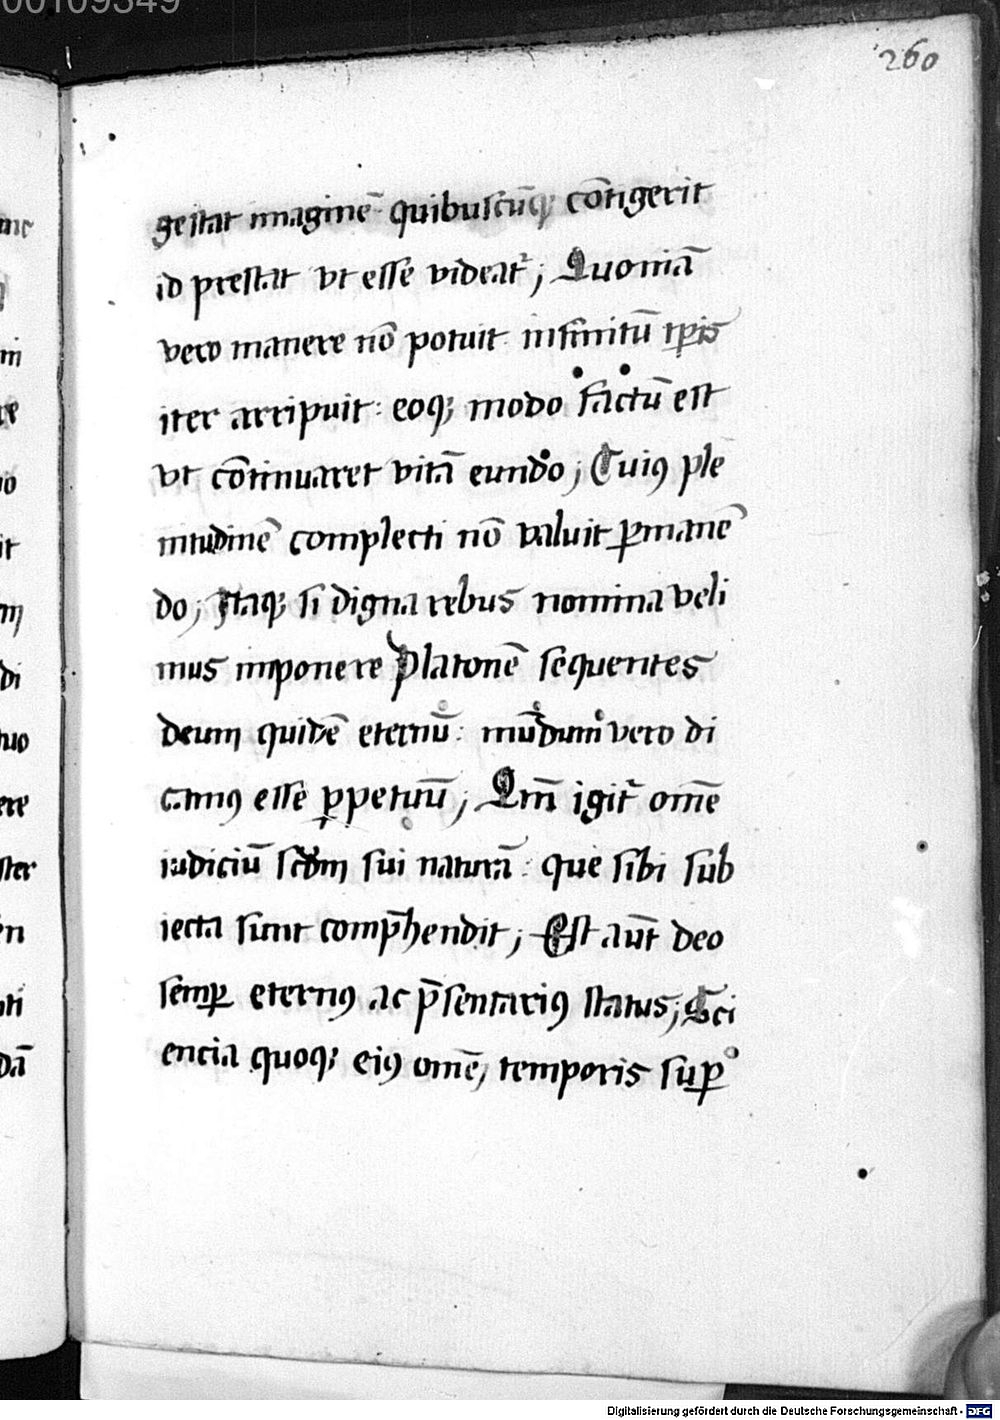 00109349
260
gestat imaginē quibuscūq; cōtigerit
id prestat vt esse videat᷑; Quoniā
vero manere nō potuit infinitū tp̄is
iter arripuit: eoq; modo factū est
vt cōtinuaret vitā eundo; Cuiꝰ ple
nitudinē complecti nō valuit ꝑmanē
do; Itaq; si digna rebus nomina veli
mus imponere Platonē sequentes
deum quidē eternū: mūdum vero di
camꝰ esse ꝑpetuū; Qm̄ igit᷑ om̄e
iudiciū scd̄m sui naturā: que sibi sub
iecta sunt comp̄hendit; Est aūt deo
semꝑ eternꝰ ac p̄sentariꝰ status; Sci
encia quoq; eiꝰ om̄e, temporis suꝑ
Digitalisierung gefördert durch die Deutsche Forschungsgemeinschaft - DFG